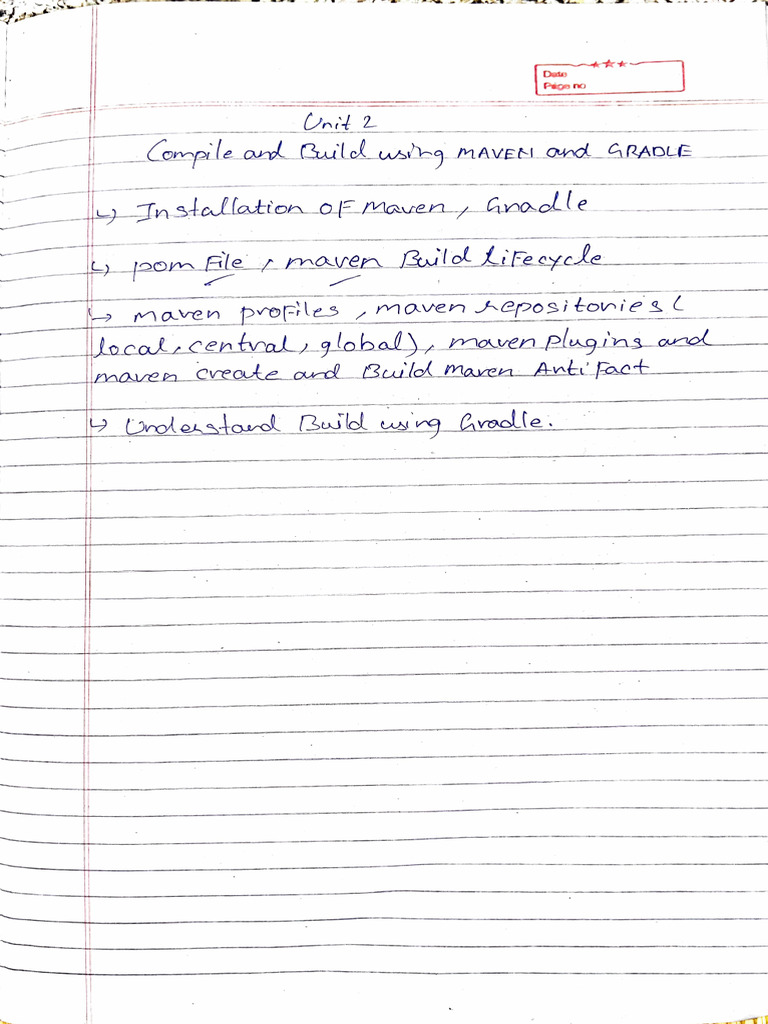 Date
Page no
Unit 2
Compile and Build using MAVEN and GRADLE
↳ Installation OF Maven, Gradle
↳ pom File, maven Build LiFecycle
↳ maven profiles, maven repositories (
local, central, global), maven plugins and
maven create and Build maven ArtiFact
↳ Understand Build using Gradle.